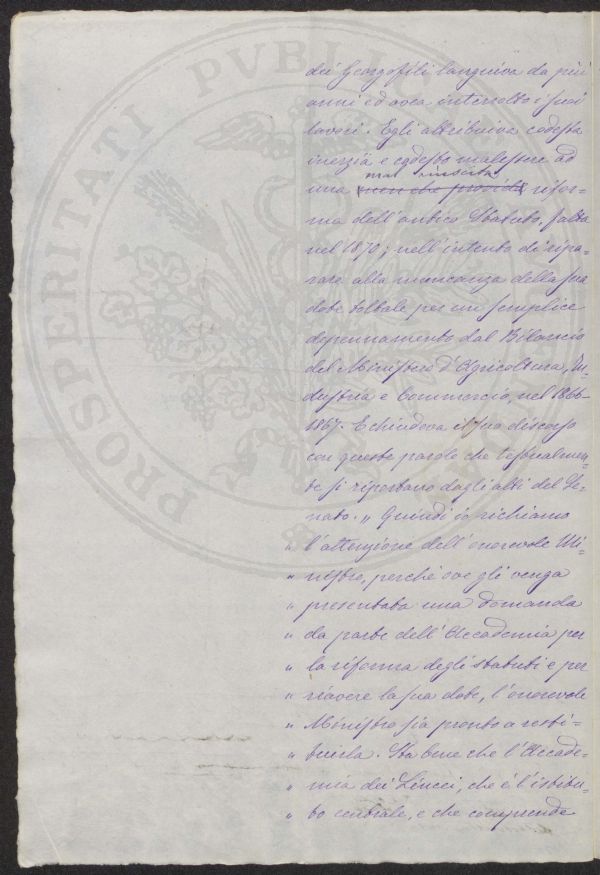 dei Georgofili languiva da più
anni ed avea interrotto i suoi
lavori. Egli attribuiva codesta
inerzia e codesto malessere ad
mal riuscita
una non che provvida rifor-
ma dell'antico Statuto, fatta
nel 1870; nell'intento di ripa-
rare alla mancanza della sua
dote toltale per un semplice
depennamento dal Bilancio
del Ministero d'Agricoltura, In-
dustria e Commercio, nel 1866-
1867. E chiudeva il suo discorso
con queste parole che testualmen-
te si riportano dagli atti del Se-
nato. „ Quindi io richiamo
„ l'attenzione dell'onorevole Mi-
„ nistro, perchè ove gli venga
„ presentata una domanda
„ da parte dell'Accademia per
„ la riforma degli statuti e per
„ riavere la sua dote, l'onorevole
„ Ministro sia pronto a resti-
„ tuirla. Sta bene che l'Accade-
„ mia dei Lincei, che è l'istitu-
„ to centrale, e che comprende
PROSPERITATI PVBLIC